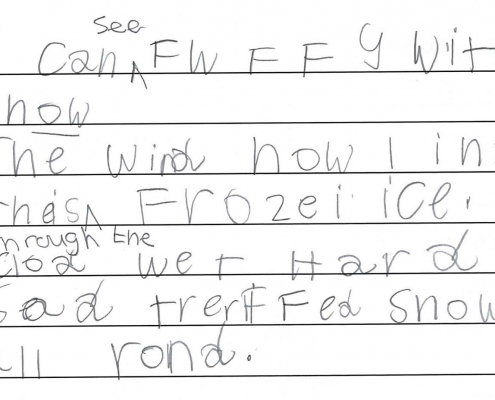 see
Can ^ FWFFy Wit
how
The wind how l in
theis ^ Frozei ice.
hrough the
clod wet Hard
Sad trerfFed Snow
all rond.